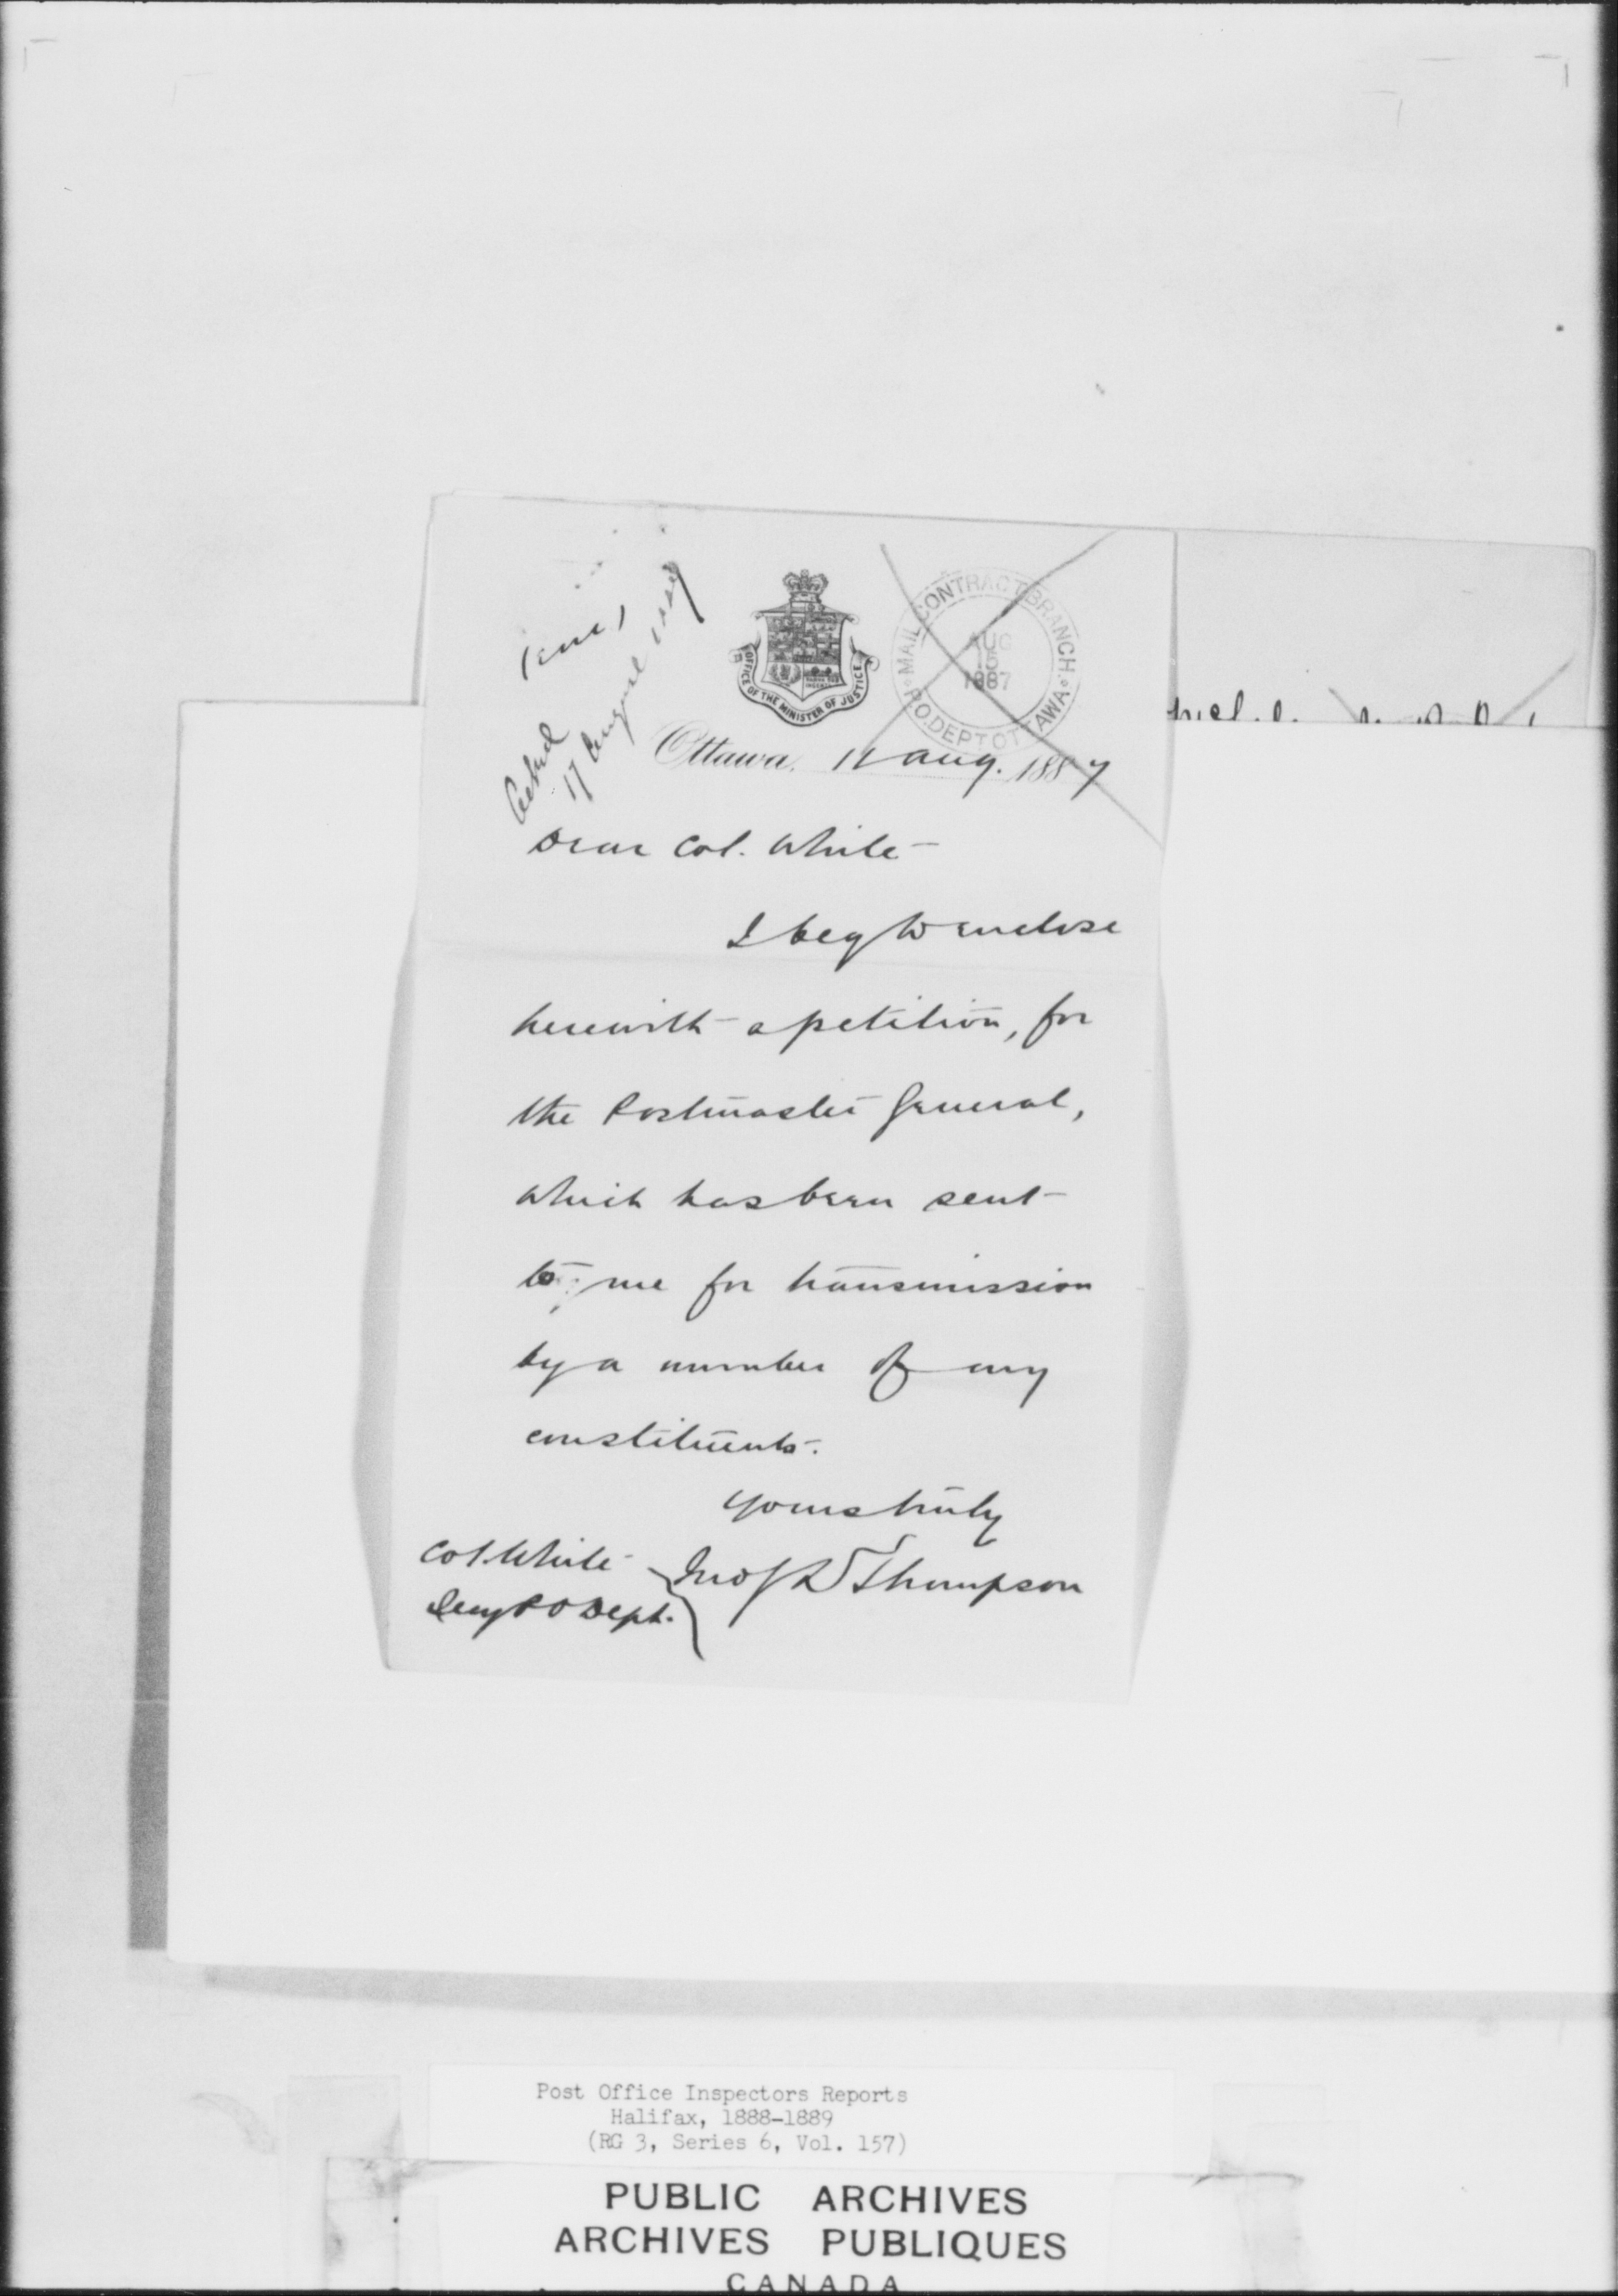 Ackd
17 August 1887
OFFICE OF THE MINISTER OF JUSTICE
MAIL CONTRACT BRANCH
P.O. DEPT OTTAWA
AUG
15
1887
Ottawa, 11 Aug. 1887
Dear Col. White –
I beg to enclose
herewith a petition, for
the Postmaster General,
which has been sent
to me for transmission
by a number of my
constituents.
Yours truly
Jno S D Thompson
Col. White
Secy P O Dept.
Post Office Inspectors Reports
Halifax, 1888-1889
(RG 3, Series 6, Vol. 157)
PUBLIC ARCHIVES
ARCHIVES PUBLIQUES
CANADA